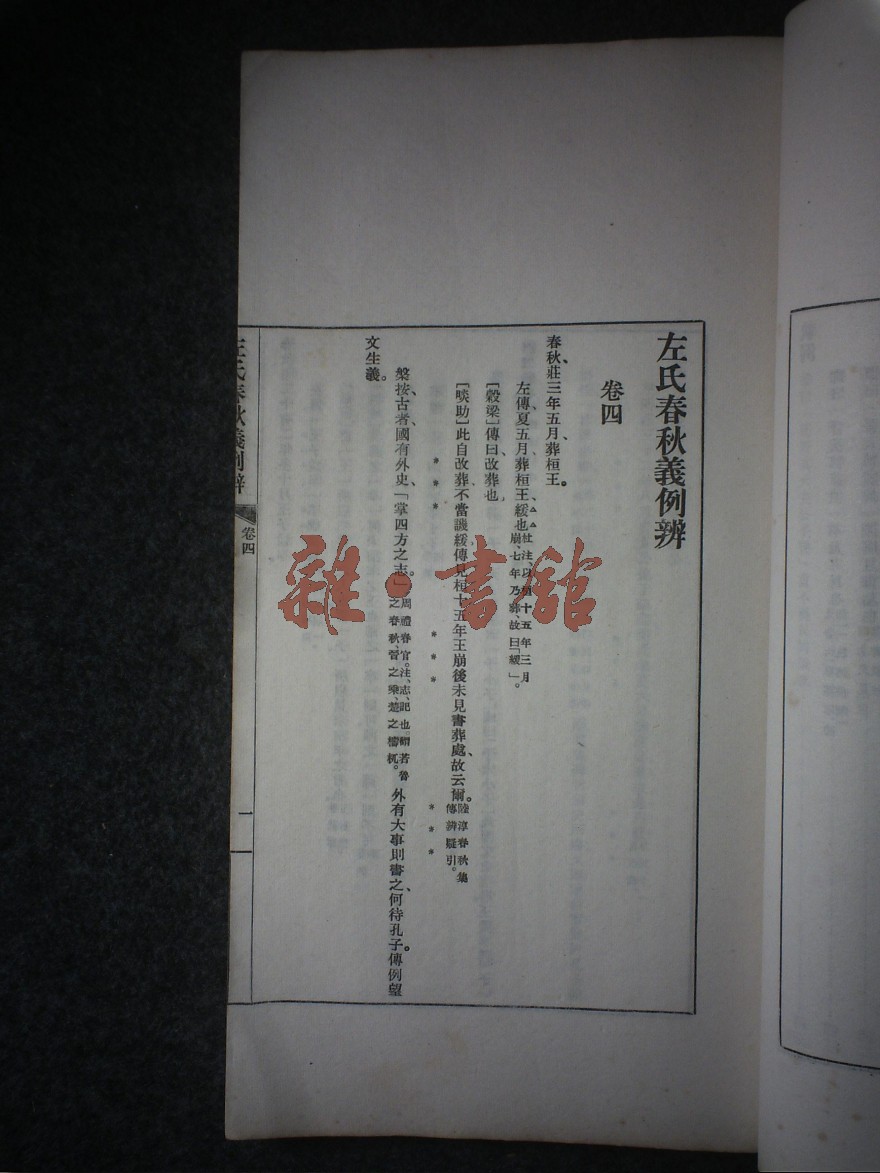 左氏春秋義例辨
卷四
春秋、莊三年五月、葬桓王。
左傳、夏五月、葬桓王、緩也。杜注、以桓十五年三月
崩、七年乃葬、故曰「緩」。
[穀梁]傳曰、改葬也、
[啖助]此自改葬、不當譏緩、傳見桓十五年王崩後、未見書葬處、故云爾。陸淳春秋集
傳辨疑引。
* * * * * * * * *
槃按、古者、國有外史、「掌四方之志。」周禮春官。注、志、記也、謂若魯
之春秋、晉之乘、楚之檮杌。外有大事則書之、何待孔子。傳例望
文生義。
左氏春秋義例辨
卷四
一
雜·書館